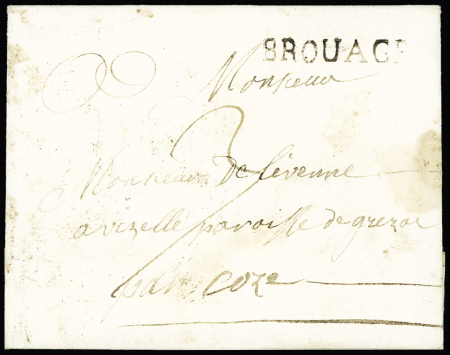 BROUAGE
Monsieur
Monsieur de Sivenne
a vizelle paroisse de grezac
par Coze